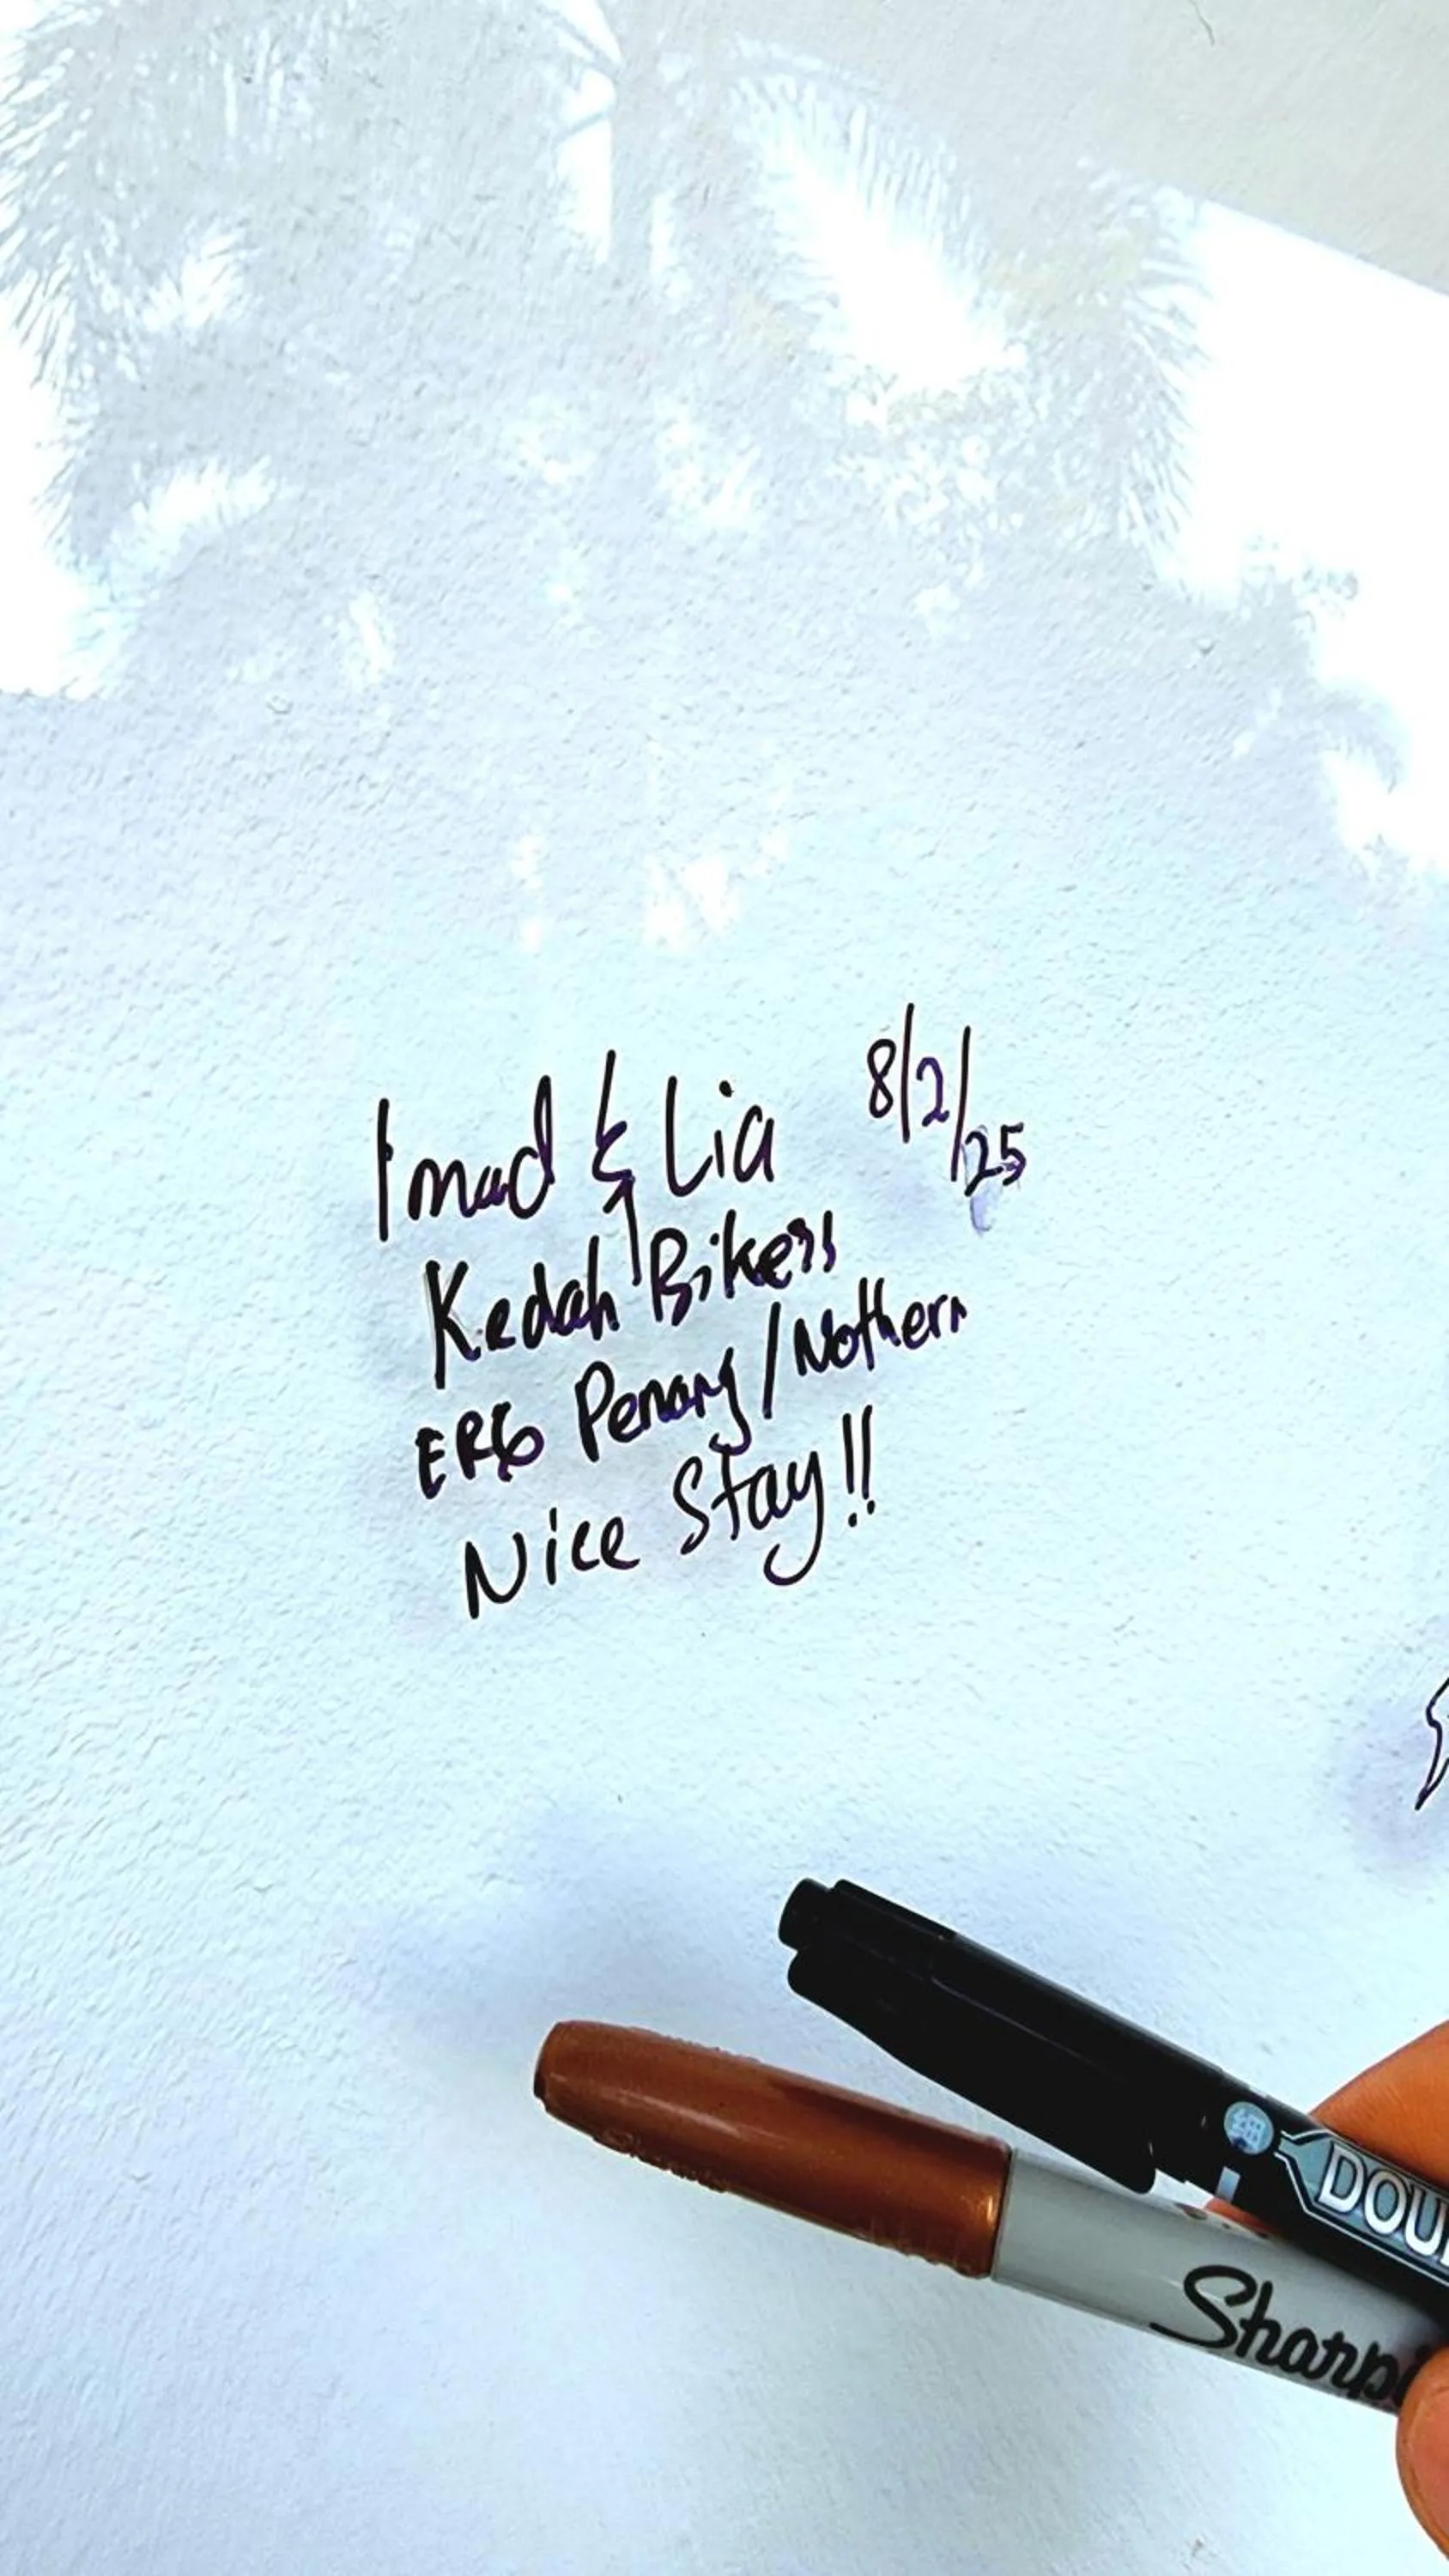 Imad & Lia 8/2/25
Kedah Bikers
ER6 Penang/Nothern
Nice Stay!!
细
DOU
Sharpi